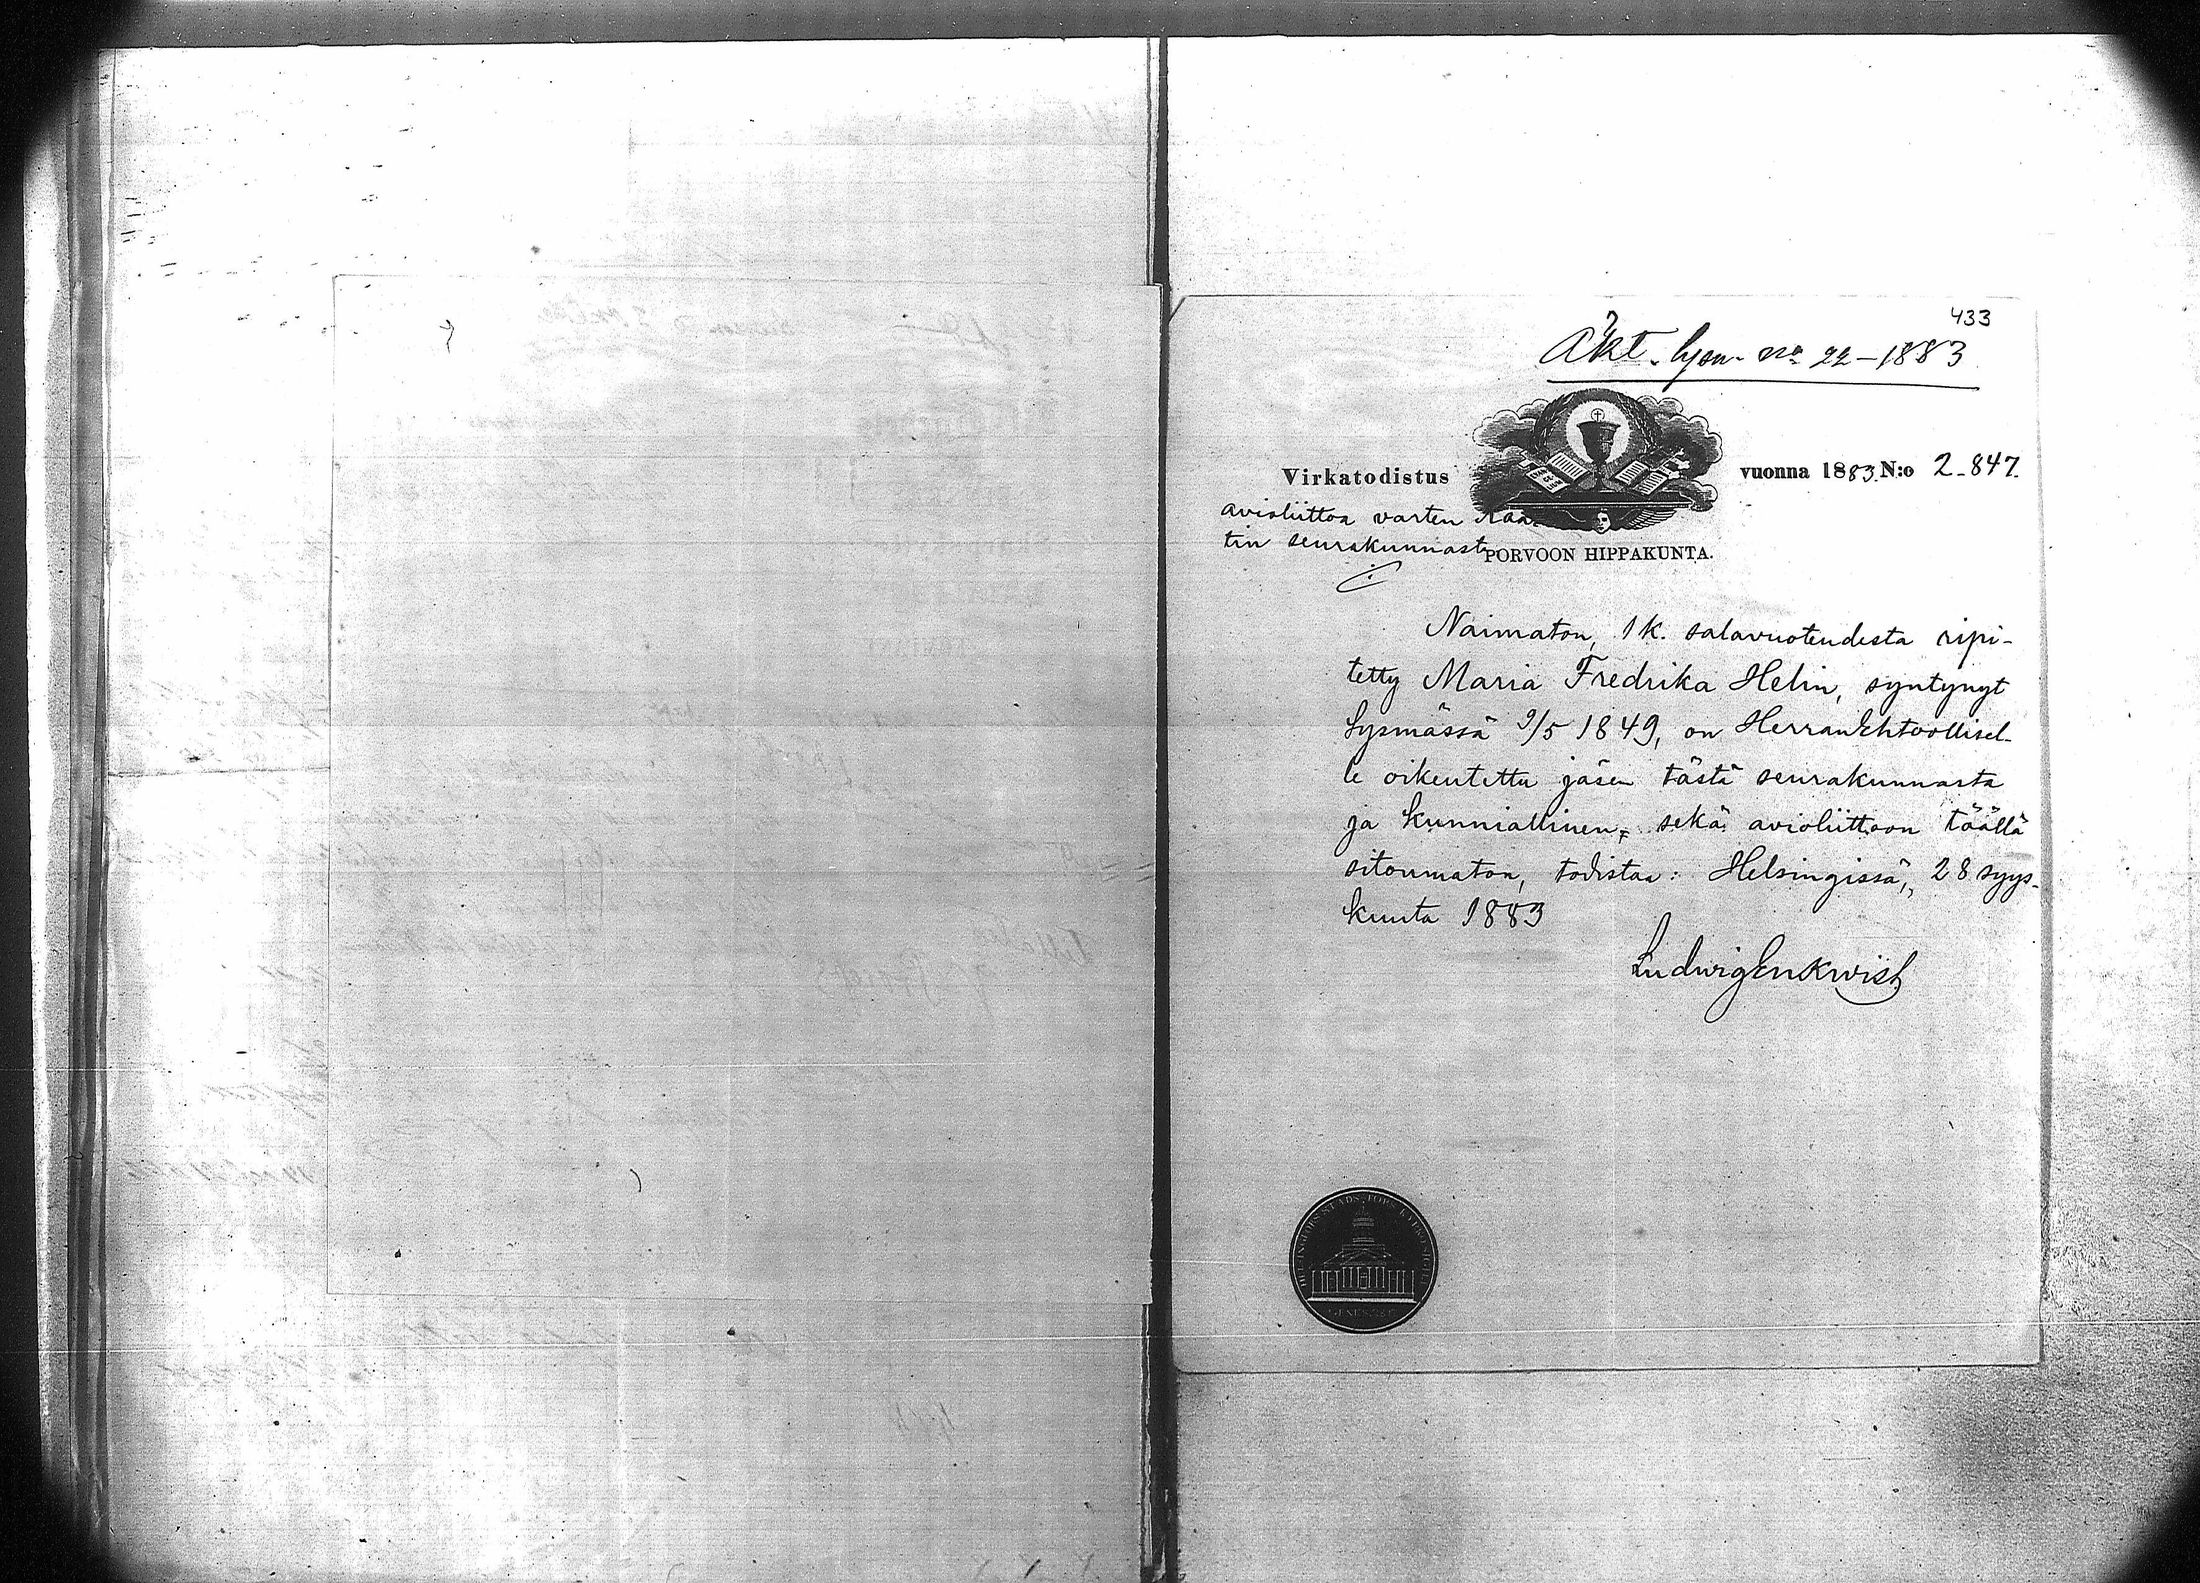 433
Äkt. lysn. no 22-1883
Virkatodistus vuonna 1883 N:o 2-847.
avioliittoa varten
tin seurakunnast
PORVOON HIPPAKUNTA.
Naimaton, 1 k. salavuoteudesta ripi-
tetty Maria Fredrika Helin, syntynyt
Sysmässä 9/5 1849, on Herran Ehtoollisel-
le oikeutettu jäsen tästä seurakunnasta
ja kunniallinen, sekä avioliittoon täällä
sitoumaton, todistaa: Helsingissä, 28 syys-
kuuta 1883
Ludwig Enkwist